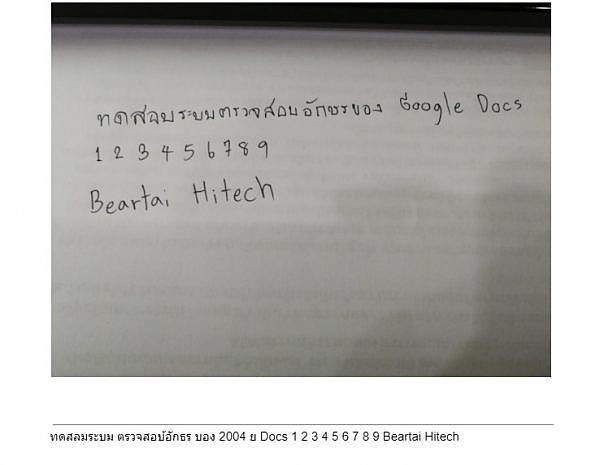 ทดสอบระบบตรวจสอบอักษรของ Google Docs
1 2 3 4 5 6 7 8 9
Beartai Hitech
ทดสลมระบม ตรวจสอบ้อักธร บอง 2004 ย Docs 1 2 3 4 5 6 7 8 9 Beartai Hitech